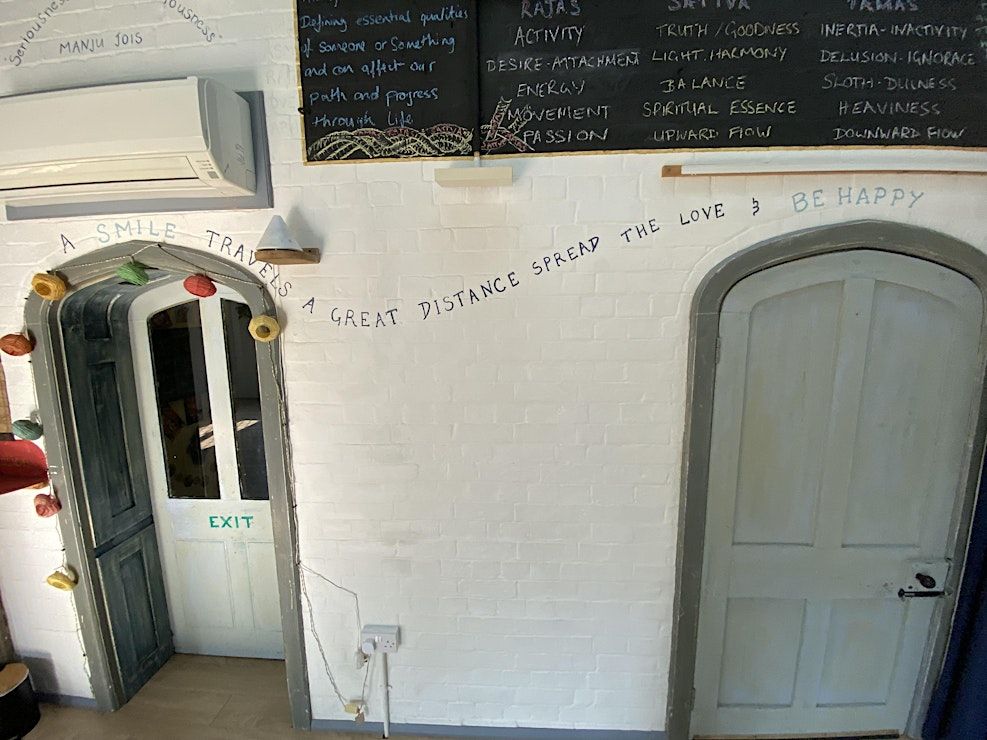 "Seriousness
iousness"
MANJU JOIS
Defining essential qualities
of someone or something
and can affect our
path and progress
through life
RAJAS
ACTIVITY
DESIRE-ATTACHMENT
ENERGY
MOVEMENT
PASSION
SATTVA
TRUTH/GOODNESS
LIGHT, HARMONY
BALANCE
SPIRITUAL ESSENCE
UPWARD FLOW
TAMAS
INERTIA-INACTIVITY
DELUSION-IGNORACE
SLOTH-DULNESS
HEAVINESS
DOWNWARD FLOW
A SMILE TRAVELS A GREAT DISTANCE SPREAD THE LOVE & BE HAPPY
EXIT